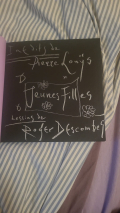 Inédits de
Pierre Louÿs
Jeunes Filles
Dessins de
Roger Descombes